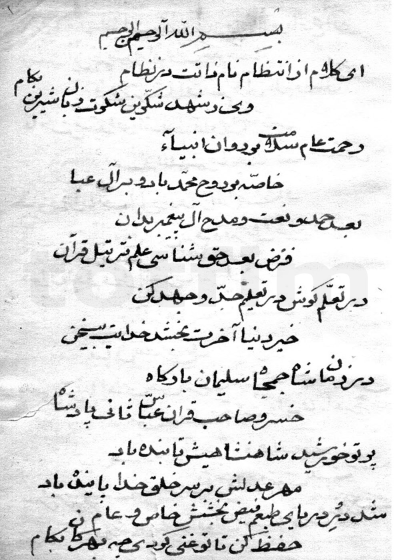 بسم الله الرحمن الرحیم
ای کلام از انتظام نام ذاتت در نظام
وی ز شهد شکرین شکرت زبان شیرین بکام
رحمت عام سلامت بر روان انبیاء
خاصه بر روح محمد باد و بر آل عبا
بعد حمد و نعت و مدح آل پیغمبر بدان
فرض بعد حق شناسی علم ترتیل قرآن
در تعلم کوش در تعلیم جد و جهد کن
خیر دنیا آخرت بخشد خدایت بی سخن
در زمان شاه جمجاه سلیمان بارگاه
خسرو صاحب قران عباس ثانی پادشاه
پرتو خورشید شاهنشاهیش تابنده باد
مهر عدلش بر سر خلق خدا پاینده باد
شد در دریای طبعم فیض بخش خاص و عام
حفظ کن تا تو غنی گردی چه بهر کام